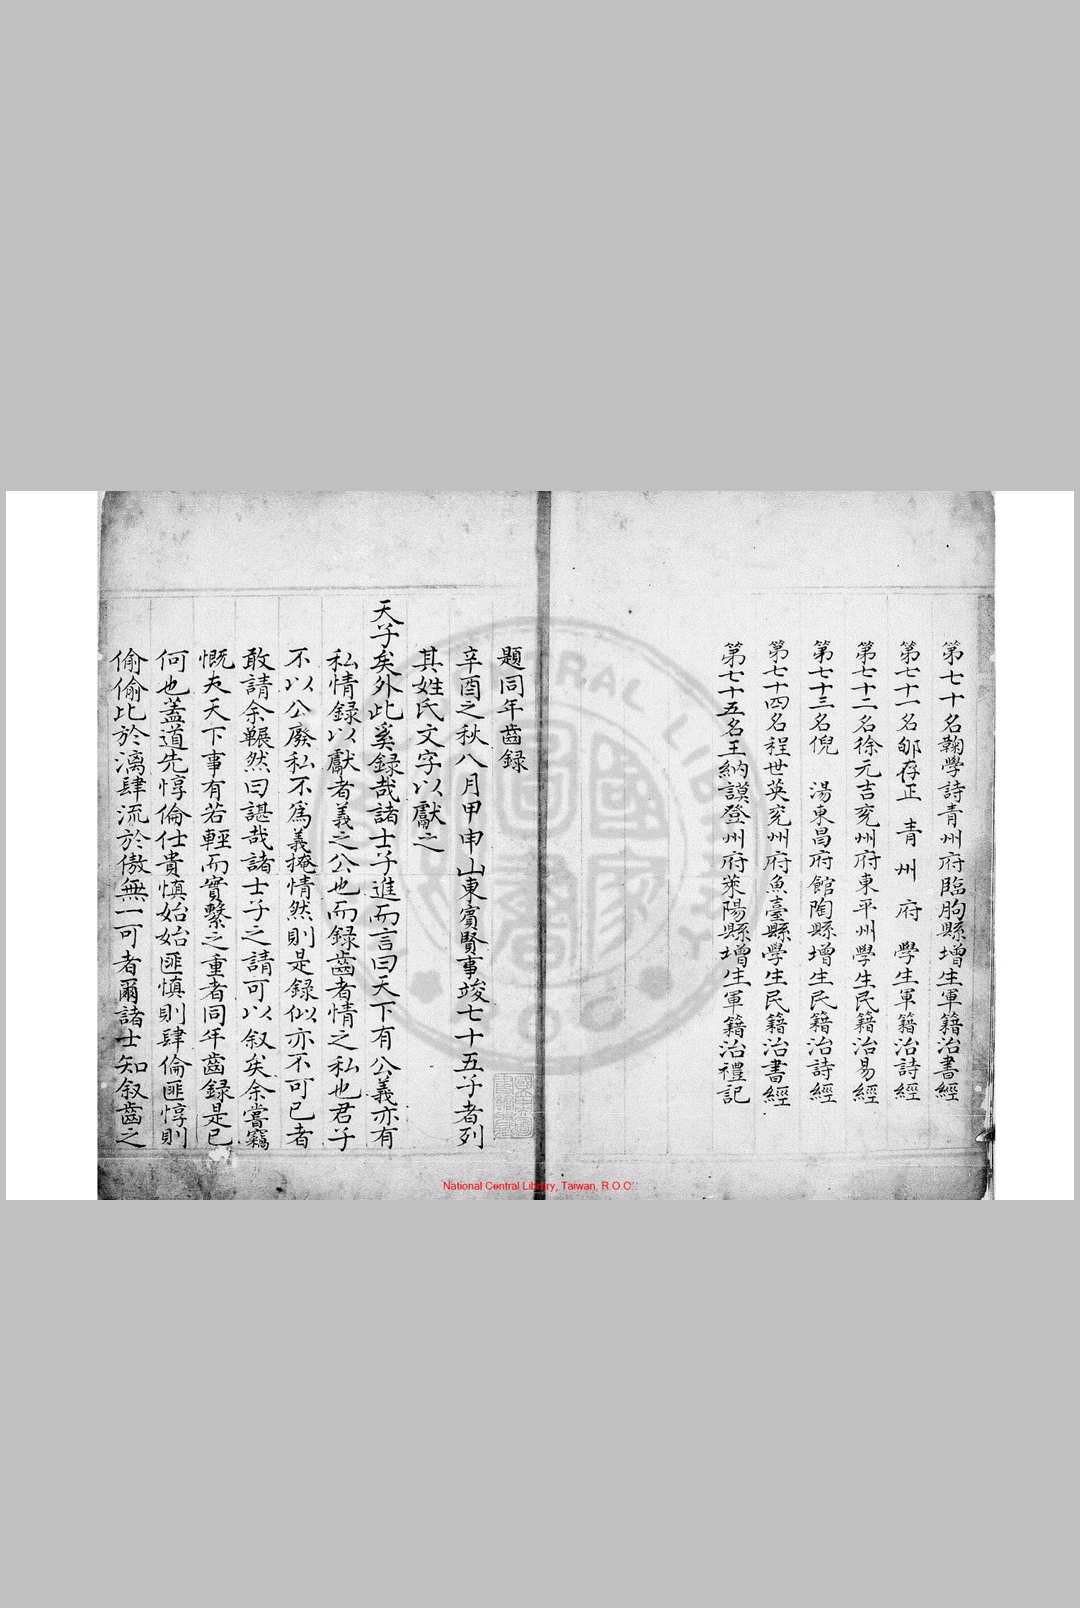 第七十名鞠學詩青州府臨朐縣增生軍籍治書經
第七十一名邹存正青州府學生軍籍治詩經
第七十二名徐元吉兖州府東平州學生民籍治易經
第七十三名倪湯東昌府館陶縣增生民籍治詩經
第七十四名程世英兖州府魚臺縣學生民籍治書經
第七十五名王納謨登州府萊陽縣增生軍籍治禮記
題同年齒録
辛酉之秋八月甲申山東賓賢事竣七十五子者列
其姓氏文字以獻之
天子矣外此奚録哉諸士子進而言曰天下有公義亦有
私情録以獻者義之公也而録齒者情之私也君子
不以公廢私不爲義掩情然則是録似亦不可已者
敢請余囅然曰諶哉諸士子之請可以叙矣余嘗竊
慨夫天下事有若輕而實繫之重者同年齒録是已
何也蓋道先惇倫仕貴慎始始匪慎則肆倫匪惇則
偷偷比於漓肆流於傲無一可者爾諸士知叙齒之
National Central Library, Taiwan, R.O.C.